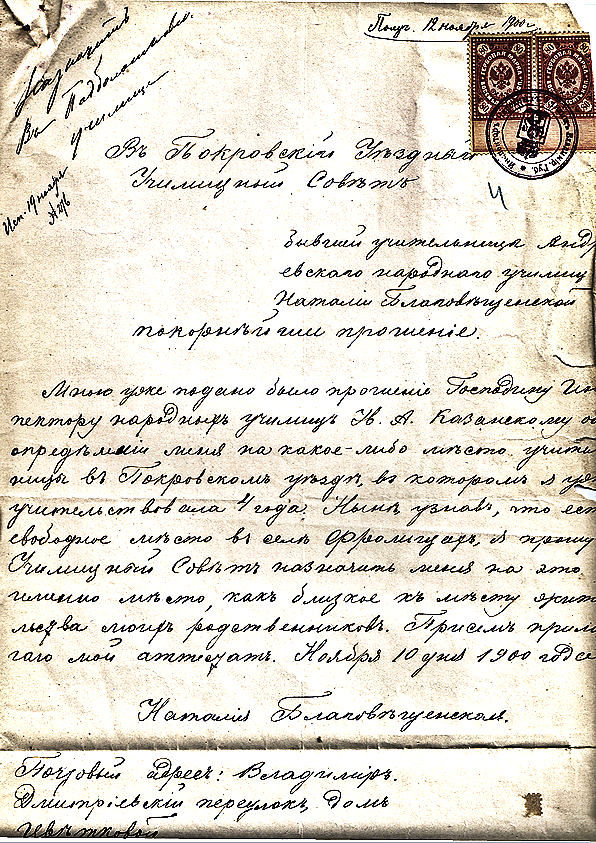 Получ. 12 ноября 1900 г.
Назначить
въ Подболотское
училище
Исп. 19 ноября
№ 296
80 80 80 80
4
Въ Покровскій Уѣздный
Училищный Совѣтъ
бывшей учительницы Андр
евскаго народнаго училищ
Наталіи Благовѣщенской
покорнѣйшее прошеніе.
Мною уже подано было прошеніе Господину Ин
пектору народныхъ училищъ Н. А. Казанскому об
опредѣленіи меня на какое-либо мѣсто учите
ницы въ Покровскомъ уѣздѣ, въ которомъ я уже
учительствовала 4 года. Нынѣ узнавъ, что ест
свободное мѣсто въ селѣ Фролищахъ, я прошу
Училищный Совѣтъ назначить меня на это
именно мѣсто, какъ близкое къ мѣсту жит
льства моихъ родственниковъ. Присемъ прила
гаю мой аттестатъ. Ноября 10 дня 1900 года
Наталія Благовѣщенская.
Почтовый адресъ: Владиміръ.
Дмитріевскій переулокъ, домъ
Цвѣтковой